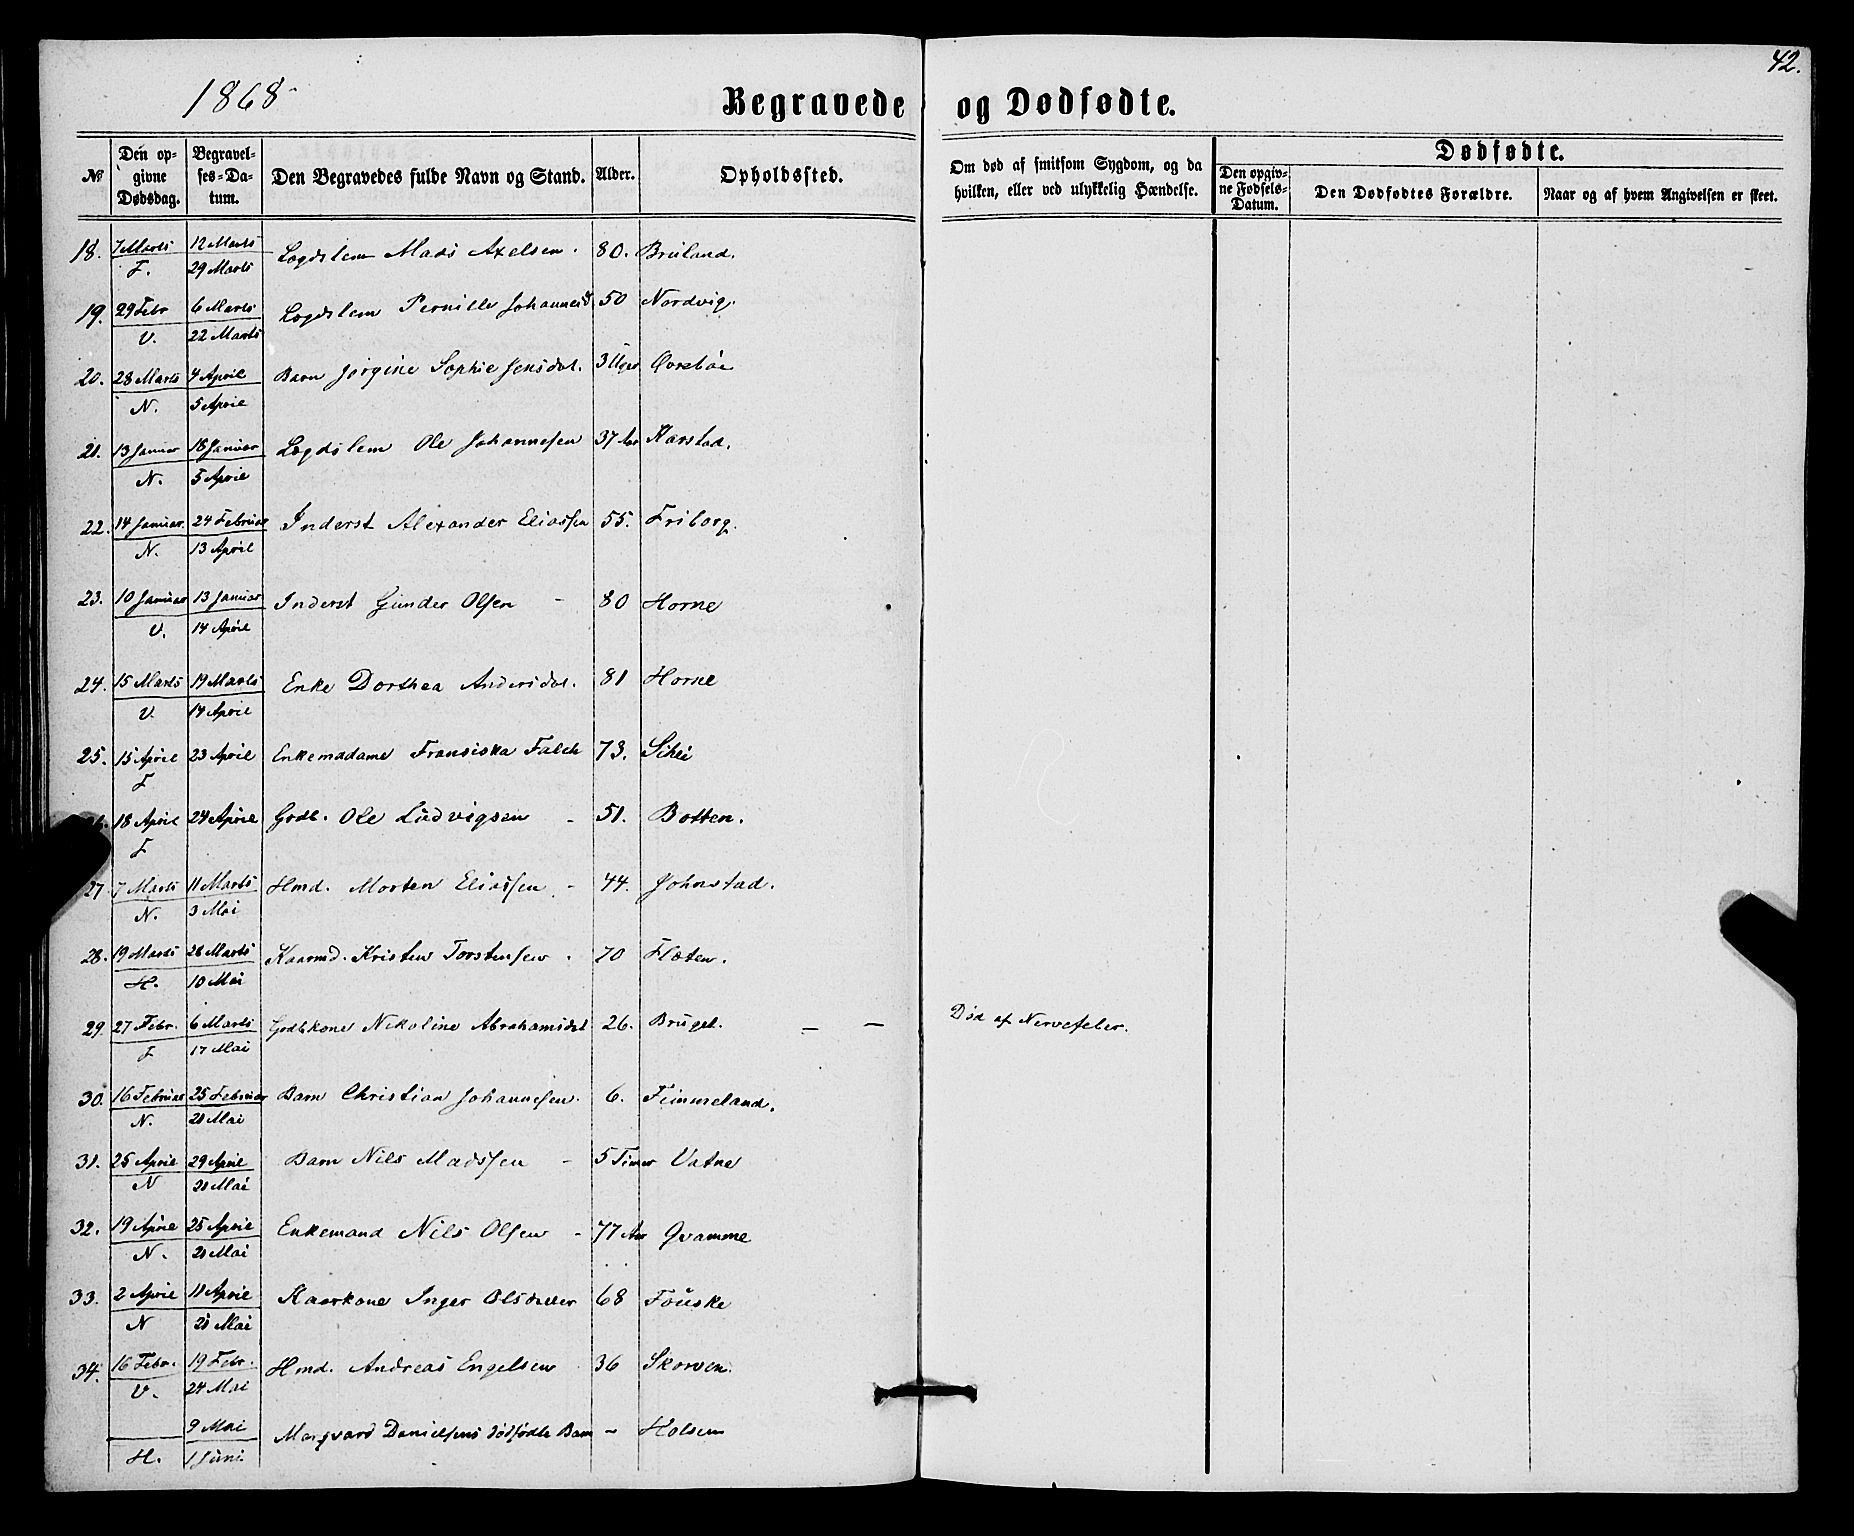 42.
1868
Begravede og Dødfødte.
№ | Den opgivne Dødsdag. | Begravelses-Datum. | Den Begravedes fulde Navn og Stand. | Alder. | Opholdssted. | Om død af smitsom Sygdom, og da hvilken, eller ved ulykkelig Hændelse. | Dødfødte. | Den opgivne Fødsels-Datum. | Den Dødfødtes Forældre. | Naar og af hvem Angivelsen er skeet.
18. 7 Marts 12 Marts Lægdslem Mads Axelsen. 80. Bruland.
F. 29 Marts
19. 29 Febr 6 Marts Lægdslem Pernille Johannesd 50 Nordvig.
V. 22 Marts
20. 28 Marts 4 April Barn Jørgine Sophie Jensdat. 3 Uger
N. 5 April
21. 13 Januar 18 Januar Lægdslem Ole Johannesen 37 Aar Karstad.
N. 5 April
22. 14 Januar. 24 Februar Inderst Alexander Eliassen 55. Friborg.
N. 13 April
23. 10 Januar 13 Januar Inderst Gunder Olsen - 80 Horne
V. 14 April
24. 15 Marts 19 Marts Enke Dorthea Andersdat. 81 Horne
V. 14 April
25. 15 April 23 April Enkemadame Fransiska Falch 73.
F
18 April 24 April Grdb. Ole Ludvigsen - 51. Botten.
F
27. 7 Marts 11 Marts Hmd. Morten Eliassen - 44. Johnstad.
N. 3 Mai
28. 19 Marts 28 Marts Kaarmd. Kristen Torstensen. 70 Flæten.
H. 10 Mai
29. 27 Febr. 6 Marts Grdbkone Nikoline Abrahamsdat 26. Bruget. - - Død af Nervefeber.
F 17 Mai
30. 16 Februar 25 Februar Barn Christian Johannesen. 6. Fimmeland.
N. 21 Mai
31. 25 April 29 April Barn Nils Madssen - 5 Timer Vatne
N 21 Mai
32. 19 April 25 April Enkemand Nils Olsen - 77 Aar Qvamme
N. 21 Mai
33. 2 April 11 April Kaarkone Inger Olsdatter 68 Fouske
N 21 Mai
34. 16 Febr. 19 Febr. Hmd. Andreas Engelsen 36 Skorven.
V. 24 Mai
9 Mai Marqvard Danielsens dødfødte Barn - Holsen
H. 1 Juni.